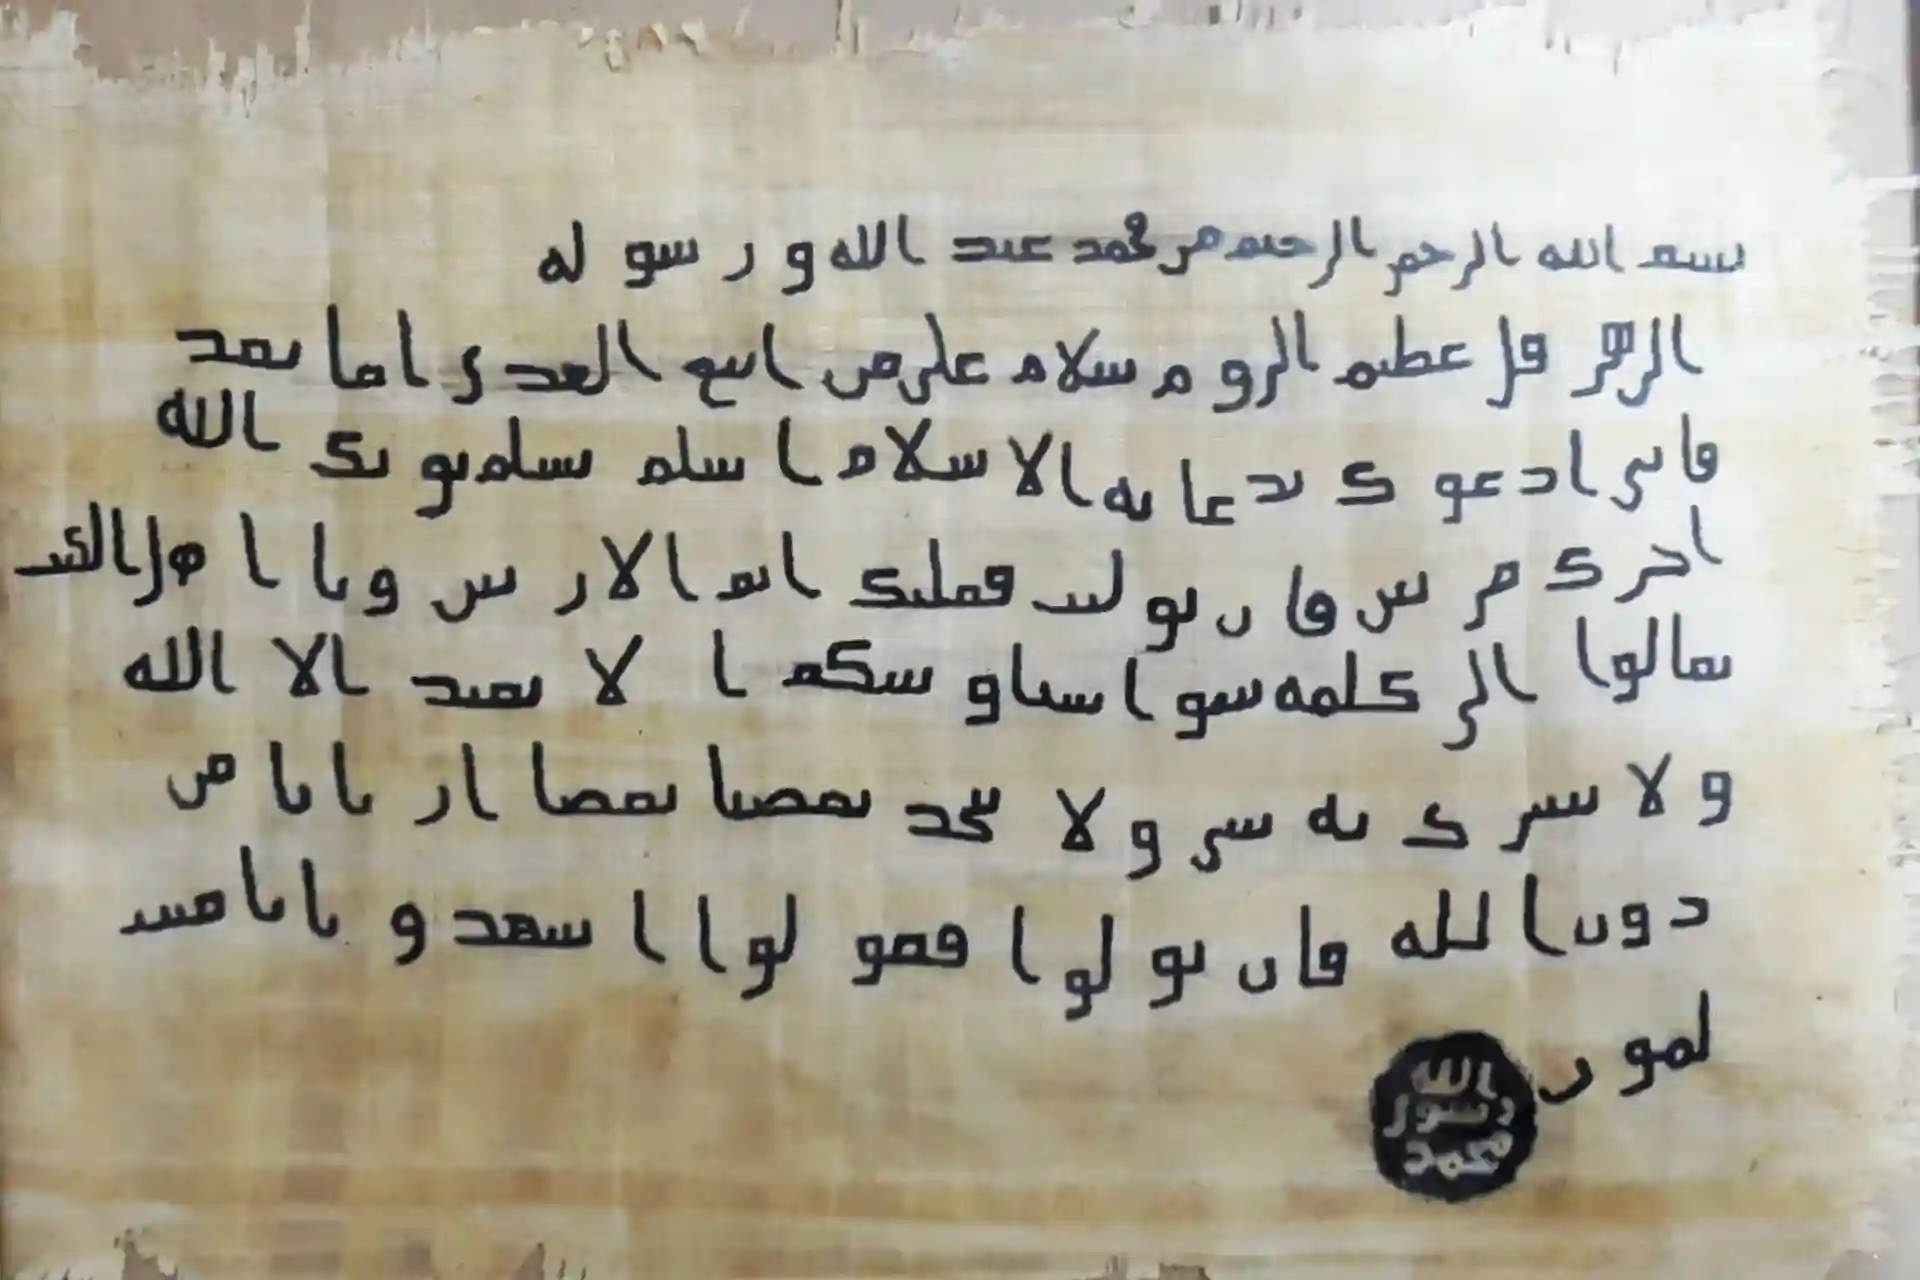 بسم الله الرحمن الرحيم من محمد عبد الله و رسوله
الى هرقل عظيم الروم سلام على من اتبع الهدى اما بعد
فانى ادعوك بدعايه الاسلام اسلم تسلم يوتك الله
اجرك مرتين فان توليت فعليك اثم الاريسين ويا اهل الكتب
تعالوا الى كلمه سوا بيننا وبينكم ا لا نعبد الا الله
و لا نشرك به شى و لا يتخذ بعضنا بعضا اربابا من
دون الله فان تولوا فقولوا اشهدو بانا مس
لمون
الله
رسول
محمد